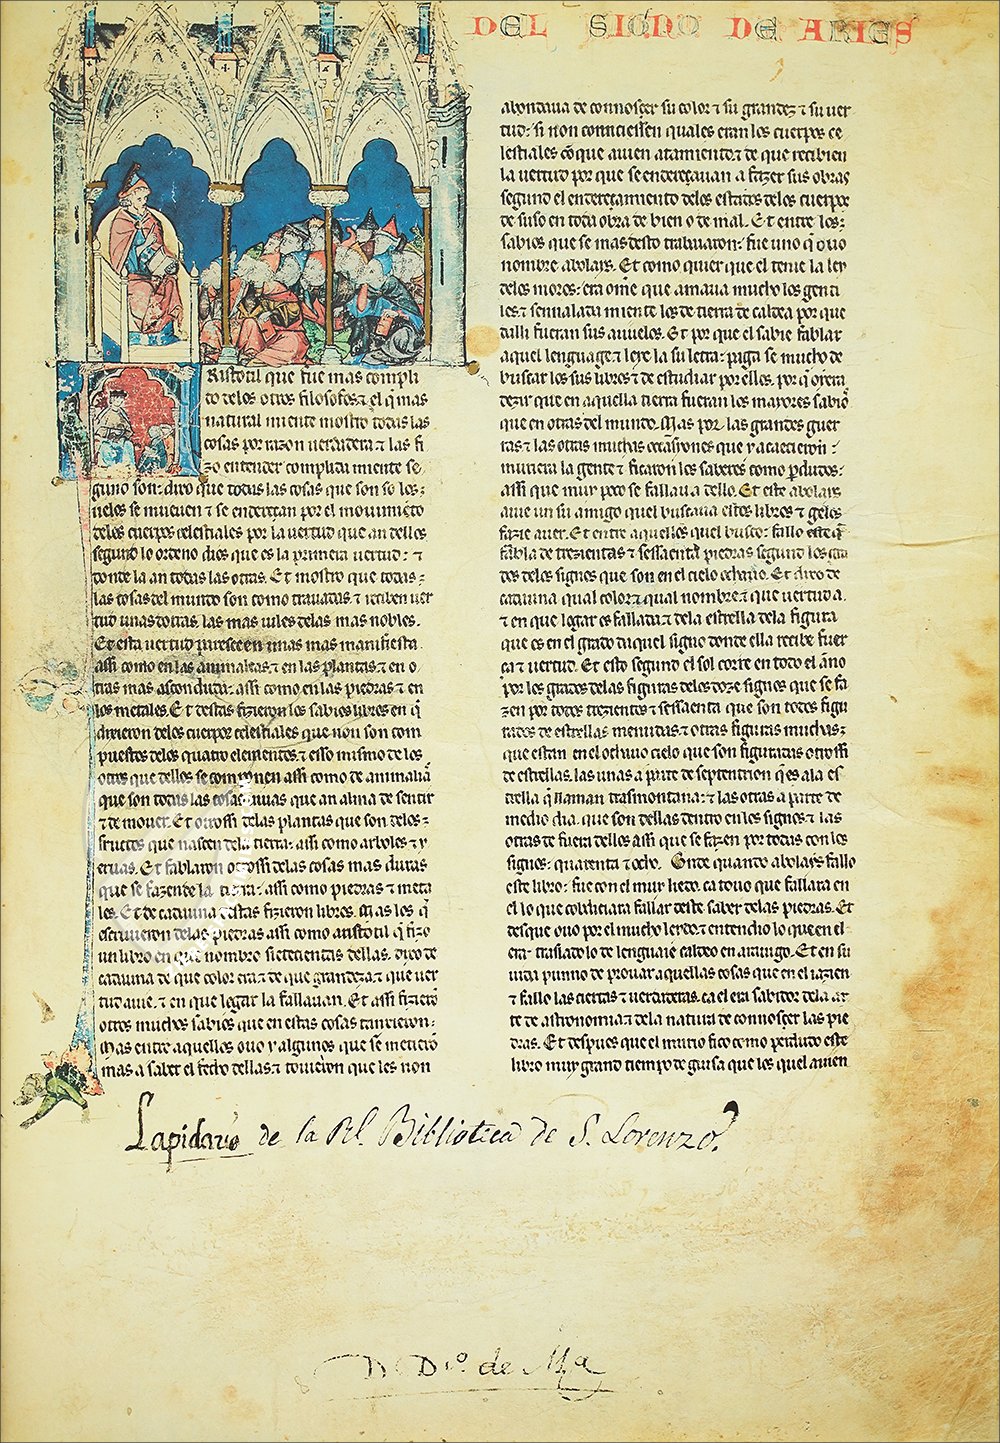 DEL SIGNO DE ARIES
Ristotil que fue mas compli
do delos otros filosofos ⁊ el q̃ mas
natural miente mostro todas las
cosas por razon uerdadera ⁊ las fi
zo entender complida miente se
gund son: dixo que todas las cosas que son so los
cielos se mueuen ⁊ se endereçan por el mouimiẽto
delos cuerpos celestiales por la uertud que an dellos
segund lo ordeno dios que es la primera uertud: ⁊
donde la an todas las otras. Et mostro que todas
las cosas del mundo son como trauadas. ⁊ reciben uer
tud unas dotras. las mas uiles delas mas nobles.
Et esta uertud paresce en unas mas manifiesta
assi como en las animalias. ⁊ en las plantas. ⁊ en o
tras mas ascondida: assi como en las piedras ⁊ en
los metales. Et destas fizieron los sabios libros en q̃
dixieron delos cuerpos celestiales que non son com
puestos delos quatro elementos. ⁊ esso mismo de los
otros que dellos se componen assi como de animaliã
que son todas las cosas uiuas que an alma de sentir
⁊ de mouer. Et otrossi delas plantas que son delos
fructos que nascen dela tierra: assi como arboles ⁊ y
eruas. Et fablaron otrossi delas cosas mas duras
que se fazen de la tierra: assi como piedras ⁊ meta
les. Et de cadauna destas fizieron libros. Mas los q̃
escriuieron delas piedras assi como aristotil q̃ fizo
un libro en que nombro sietecientas dellas. dixo de
cadauna de que color era: ⁊ de que grandeza: ⁊ que uer
tud auie. ⁊ en que logar la fallauan. Et assi fizierõ
otros muchos sabios que en estas cosas tanxieron:
Mas entre aquellos ouo y algunos que se metierõ
mas a saber el fecho dellas: ⁊ touieron que les non
abondaua de connoscer su color ⁊ su grandez ⁊ su uer
tud: si non connociessen quales eran los cuerpos ce
lestiales cõ que auien atamiento: ⁊ de que recibien
la uertud por que se endereçauan a fazer sus obras
segund el endereçamiento delos estados delos cuerpos
de suso en toda obra de bien o de mal. Et entre los
sabios que se mas desto trabaiaron: fue uno q̃ ouo
nombre abolays. Et como quier que el tenie la ley
delos moros: era omẽ que amaua mucho los genti
les: ⁊ sennalada miente los de tierra de caldea por que
dalli fueran sus auuelos. Et por que el sabie fablar
aquel lenguage: ⁊ leye la su letra: paga se mucho de
buscar los sus libros: ⁊ de estudiar por ellos. por q̃ oyera
dezir que en aquella tierra fueran los mayores sabiõ
que en otras del mundo. Mas por las grandes guer
ras ⁊ las otras muchas occasiones que y acaecieron:
muriera la gente ⁊ ficaron los saberes como ꝑdudos:
assi que muy poco se fallaua dello. Et este abolays
auie un su amigo quel buscaua estos libros ⁊ gelos
fazie auer. Et entre aquellos quel busco: fallo este q̃
fabla de trezientas ⁊ sessaenta piedras segund los gra
dos delos signos que son en el cielo ochauo. Et dixo de
cadauna qual color ⁊ qual nombre ⁊ que uertud a.
⁊ en que logar es fallada: ⁊ dela estrella dela figura
que es en el grado daquel signo donde ella recibe fuer
ça ⁊ uertud. Et esto segund el sol corre en todo el ãno
por los grados delas figuras delos doze signos que se fa
zen por todos trezientos ⁊ sessaenta que son todos figu
rados de estrellas menudas ⁊ otras figuras muchas:
que estan en el ochauo cielo que son figuradas otrossi
de estrellas. las unas a parte de septentrion q̃ es ala es
trella q̃ llaman trasmontana: ⁊ las otras a parte de
medio dia. que son dellas dentro en los signos ⁊ las
otras de fuera dellos assi que se fazen por todas con los
signos: quarenta ⁊ ocho. Onde quando abolays fallo
este libro: fue con el muy ledo. ca touo que fallara en
el lo que cobdiciara fallar deste saber delas piedras. Et
desque ouo por el mucho leydo: ⁊ entendio lo que en el
era: traslado lo de lenguaie caldeo en arauigo. Et en su
uida punno de prouar aquellas cosas que en el iazien
⁊ fallo las ciertas ⁊ uerdaderas. ca el era sabidor dela ar
te de astronomia: ⁊ dela natura de connoscer las pie
dras. Et despues que el murio fico como perdudo este
libro muy grand tiempo de guisa que los quel auien
Lapidario de la Rl. Biblioteca de S. Lorenzo.